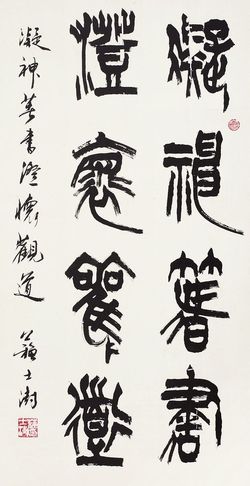 凝神箸書
澄懷觀道
凝神著書澄懷觀道
蘇士澍